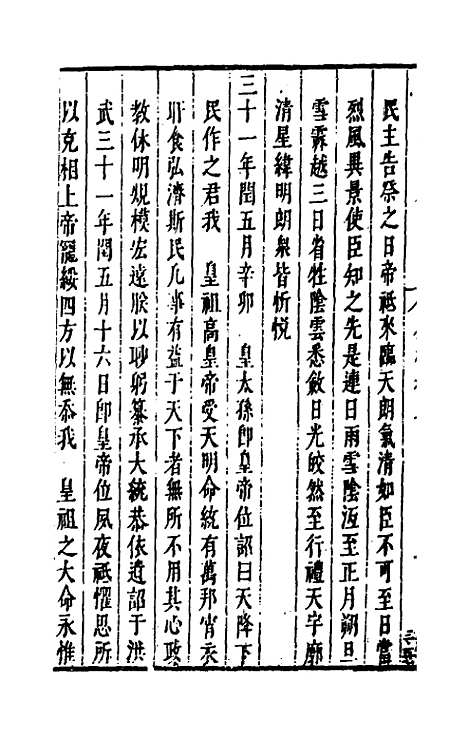 民主告祭之日帝祗來臨天朗氣清如臣不可至日當
烈風異景使臣知之先是連日雨雪陰沍至正月朔旦
雪霽越三日省牲陰雲悉斂日光皎然至行禮天宇廓
清星緯明朗衆皆忻悅
三十一年閏五月辛卯 皇太孫即皇帝位詔曰天降下
民作之君我 皇祖高皇帝受天明命統有萬邦宵衣
旰食弘濟斯民凡事有益于天下者無所不用其心政
教休明規模宏遠朕以眇躬纂承大統恭依遺詔于洪
武三十一年閏五月十六日即皇帝位夙夜祗懼思所
以克相上帝寵綏四方以無忝我 皇祖之大命永惟